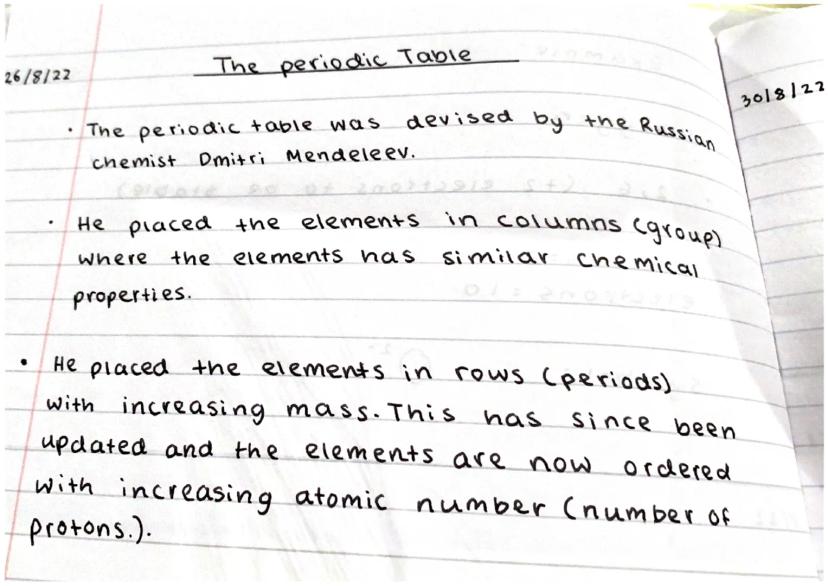 26/8/22
The periodic Table
30/8/22
• The periodic table was devised by the Russian
chemist Dmitri Mendeleev.
• He placed the elements in columns (group)
where the elements has similar chemical
properties.
• He placed the elements in rows (periods)
with increasing mass. This has since been
updated and the elements are now ordered
with increasing atomic number (number of
protons.).